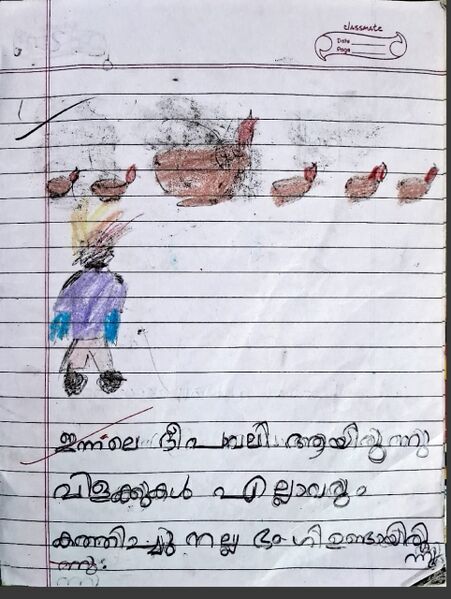 classmate
Date
Page
ഇന്നലെ ദീപവലി ആയിരുന്നു
വിളക്കുകൾ എല്ലാവരും
കത്തിച്ചു നല്ല ഭംഗി ഉണ്ടായിരു
ന്നു.